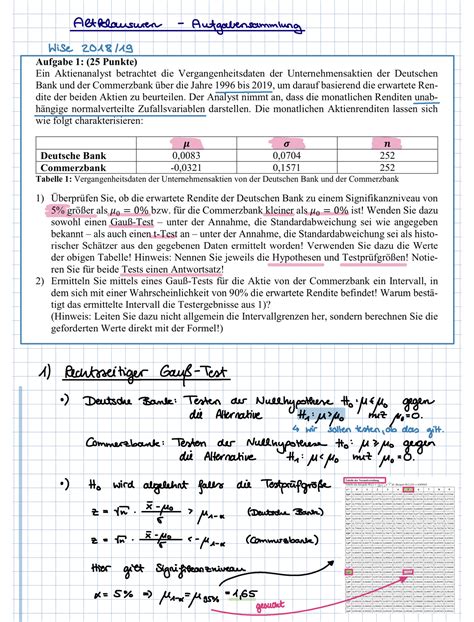 Altklausuren - Aufgabensammlung
WiSe 2018/19
Aufgabe 1: (25 Punkte)
Ein Aktienanalyst betrachtet die Vergangenheitsdaten der Unternehmensaktien der Deutschen
Bank und der Commerzbank über die Jahre 1996 bis 2019, um darauf basierend die erwartete Ren-
dite der beiden Aktien zu beurteilen. Der Analyst nimmt an, dass die monatlichen Renditen unab-
hängige normalverteilte Zufallsvariablen darstellen. Die monatlichen Aktienrenditen lassen sich
wie folgt charakterisieren:
μ σ n
Deutsche Bank 0,0083 0,0704 252
Commerzbank -0,0321 0,1571 252
Tabelle 1: Vergangenheitsdaten der Unternehmensaktien von der Deutschen Bank und der Commerzbank
1) Überprüfen Sie, ob die erwartete Rendite der Deutschen Bank zu einem Signifikanzniveau von
5% größer als μ₀ = 0% bzw. für die Commerzbank kleiner als μ₀ = 0% ist! Wenden Sie dazu
sowohl einen Gauß-Test – unter der Annahme, die Standardabweichung sei wie angegeben
bekannt – als auch einen t-Test an – unter der Annahme, die Standardabweichung sei als histo-
rischer Schätzer aus den gegebenen Daten ermittelt worden! Verwenden Sie dazu die Werte
der obigen Tabelle! Hinweis: Nennen Sie jeweils die Hypothesen und Testprüfgrößen! Notie-
ren Sie für beide Tests einen Antwortsatz!
2) Ermitteln Sie mittels eines Gauß-Tests für die Aktie von der Commerzbank ein Intervall, in
dem sich mit einer Wahrscheinlichkeit von 90% die erwartete Rendite befindet! Warum bestä-
tigt das ermittelte Intervall die Testergebnisse aus 1)?
(Hinweis: Leiten Sie dazu nicht allgemein die Intervallgrenzen her, sondern berechnen Sie die
geforderten Werte direkt mit der Formel!)
1) Rechtsseitiger Gauß-Test
•) Deutsche Bank: Testen der Nullhypothese H₀: μ ≤ μ₀ gegen
die Alternative H₁: μ > μ₀ mit μ₀ = 0.
↳ wir sollen testen, ob das gilt.
Commerzbank: Testen der Nullhypothese H₀: μ ≥ μ₀ gegen
die Alternative H₁: μ < μ₀ mit μ₀ = 0.
•) H₀ wird abgelehnt falls die Testprüfgröße
z = √n · (x̄ - μ₀)/σ > μ₁₋α (Deutsche Bank)
z = √n · (x̄ - μ₀)/σ < -μ₁₋α (Commerzbank)
Hier gilt Signifikanzniveau
α = 5% ⇒ μ₁₋α = μ₉₅% = 1,65
gesucht